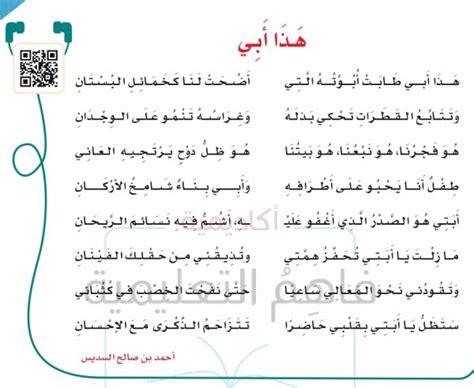 هَذَا أَبِي
هَذَا أَبي طَابَتْ أُبُوَّتُهُ الَّتِي أَضْحَتْ لَنَا كَخَمَائِلِ البُسْتَانِ
وَتَتَابُعُ القَطَرَاتِ تَحْكِي بَذْلَهُ وَغِرَاسُهُ تَنْمُو عَلَى الوِجْدَانِ
هُوَ فَجْرُنَا، هُوَ نَبْعُنَا، هُوَ بَيْتُنَا هُوَ ظِلُّ دَوْحٍ يَرْتَجِيهِ العَانِي
طِفْلٌ أَنَا يَحْبُو عَلَى أَطْرَافِهِ وَأَبِي بِنَاءٌ شَامِخُ الأَرْكَانِ
أَبَتِي هُوَ الصَّدْرُ الَّذِي أَغْفُو عَلَيْـ ـهِ، أَشُمُّ فِيهِ نَسَائِمَ الرَّيحَانِ
مَا زِلْتَ يَا أَبَتِي تُحَفِّزُ هِمَّتِي وَتُذِيقُنِي مِن حَقْلِكَ الفَيْنَانِ
وَتَقُودُنِي نَحْوَ المَعَالِي سَاعِيًا حَتَّى نَفَحْتَ الخِصْبَ فِي كُثْبَانِي
سَتَظَلُّ يَا أَبَتِي بِقَلْبِي حَاضِرًا تَتَزَاحَمُ الذِّكْرَى مَعَ الإِحْسَانِ
أحمد بن صالح السديس
أكاديمية
فاهم التعليمية